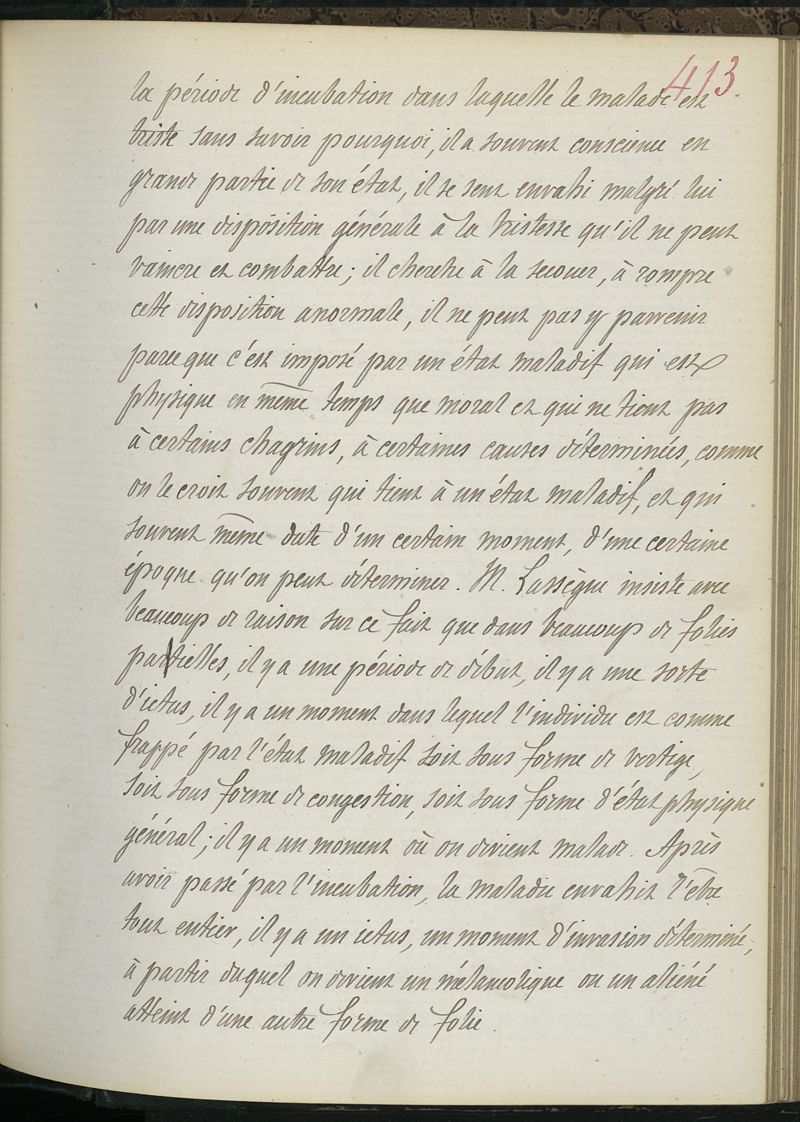 413.
la période d'incubation dans laquelle le malade est
triste sans savoir pourquoi, il a souvent conscience en
grande partie de son état, il se sent envahi malgré lui
par une disposition générale à la tristesse qu'il ne peut
vaincre et combattre ; il cherche à la secouer, à rompre
cette disposition anormale, il ne peut pas y parvenir
parce que c'est imposé par un état maladif qui est
physique en même temps que moral et qui ne tient pas
à certains chagrins, à certaines causes déterminées, comme
on le croit souvent qui tient à un état maladif, et qui
souvent même date d'un certain moment, d'une certaine
époque qu'on peut déterminer. M. Lassègue insiste avec
beaucoup de raison sur ce fait que dans beaucoup de folies
partielles, il y a une période de début, il y a une sorte
d'ictus, il y a un moment dans lequel l'individu est comme
frappé par l'état maladif soit sous forme de vertige,
soit sous forme de congestion, soit sous forme d'état physique
général ; il y a un moment où on devient malade. Après
avoir passé par l'incubation, la maladie envahit l'être
tout entier, il y a un ictus, un moment d'invasion déterminé,
à partir duquel on devient un mélancolique ou un aliéné
atteint d'une autre forme de folie.